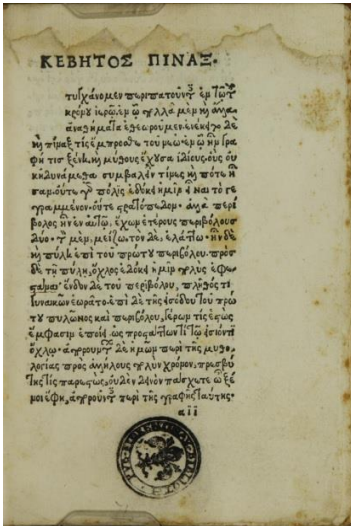 ΚΕΒΗΤΟΣ ΠΙΝΑΞ.
τυγχάνομεν περιπατοῦντες ἐν τῷ τοῦ
κρόνου ἱερῷ, ἐν ᾧ πολλὰ μὲν καὶ ἄλλα
ἀναθήματα ἐθεωροῦμεν· ἀνέκειτο δὲ
καὶ πίναξ τὶς ἔμπροσθεν τοῦ νεὼ, ἐν ᾧ ἦν γρα
φή τις ξένη, καὶ μύθους ἔχουσα ἰδίους, οὓς οὐ
κ ἠδυνάμεθα συμβαλεῖν τίνες καὶ ποτὲ ἦ
σαν. οὔτε γὰρ πόλις ἐδόκει ἡμῖν εἶναι τὸ γε
γραμμένον. οὔτε στρατόπεδον. ἀλλὰ περί
βολος ἦν ἐν αὑτῷ, ἔχων ἑτέρους περιβόλους
δύο. τὸν μὲν, μείζω, τὸν δὲ, ἐλάττω. ἦν δὲ
καὶ πύλη ἐπὶ τοῦ πρώτου περιβόλου. πρὸς
δὲ τῇ πύλῃ, ὄχλος ἐδόκει ἡμῖν πολὺς ἐφε
στάναι. ἔνδον δὲ τοῦ περιβόλου, πλῆθός τι
γυναικῶν ἑωρᾶτο. ἐπὶ δὲ τῆς εἰσόδου τοῦ πρώ
του πυλῶνος καὶ περιβόλου, γέρων τὶς ἑστὼς
ἔμφασιν ἐποίει, ὡς προστάττων τὶ τῷ εἰσιόντι
ὄχλῳ. ἀπορούντων δὲ ἡμῶν περὶ τῆς μυθο
λογίας πρὸς ἀλλήλους πολὺν χρόνον, πρεσβύ
της τὶς παρεστὼς, οὐδὲν δεινὸν πάσχετε ὦ ξέ
νοι ἔφη, ἀποροῦντες περὶ τῆς γραφῆς ταύτης.
aii